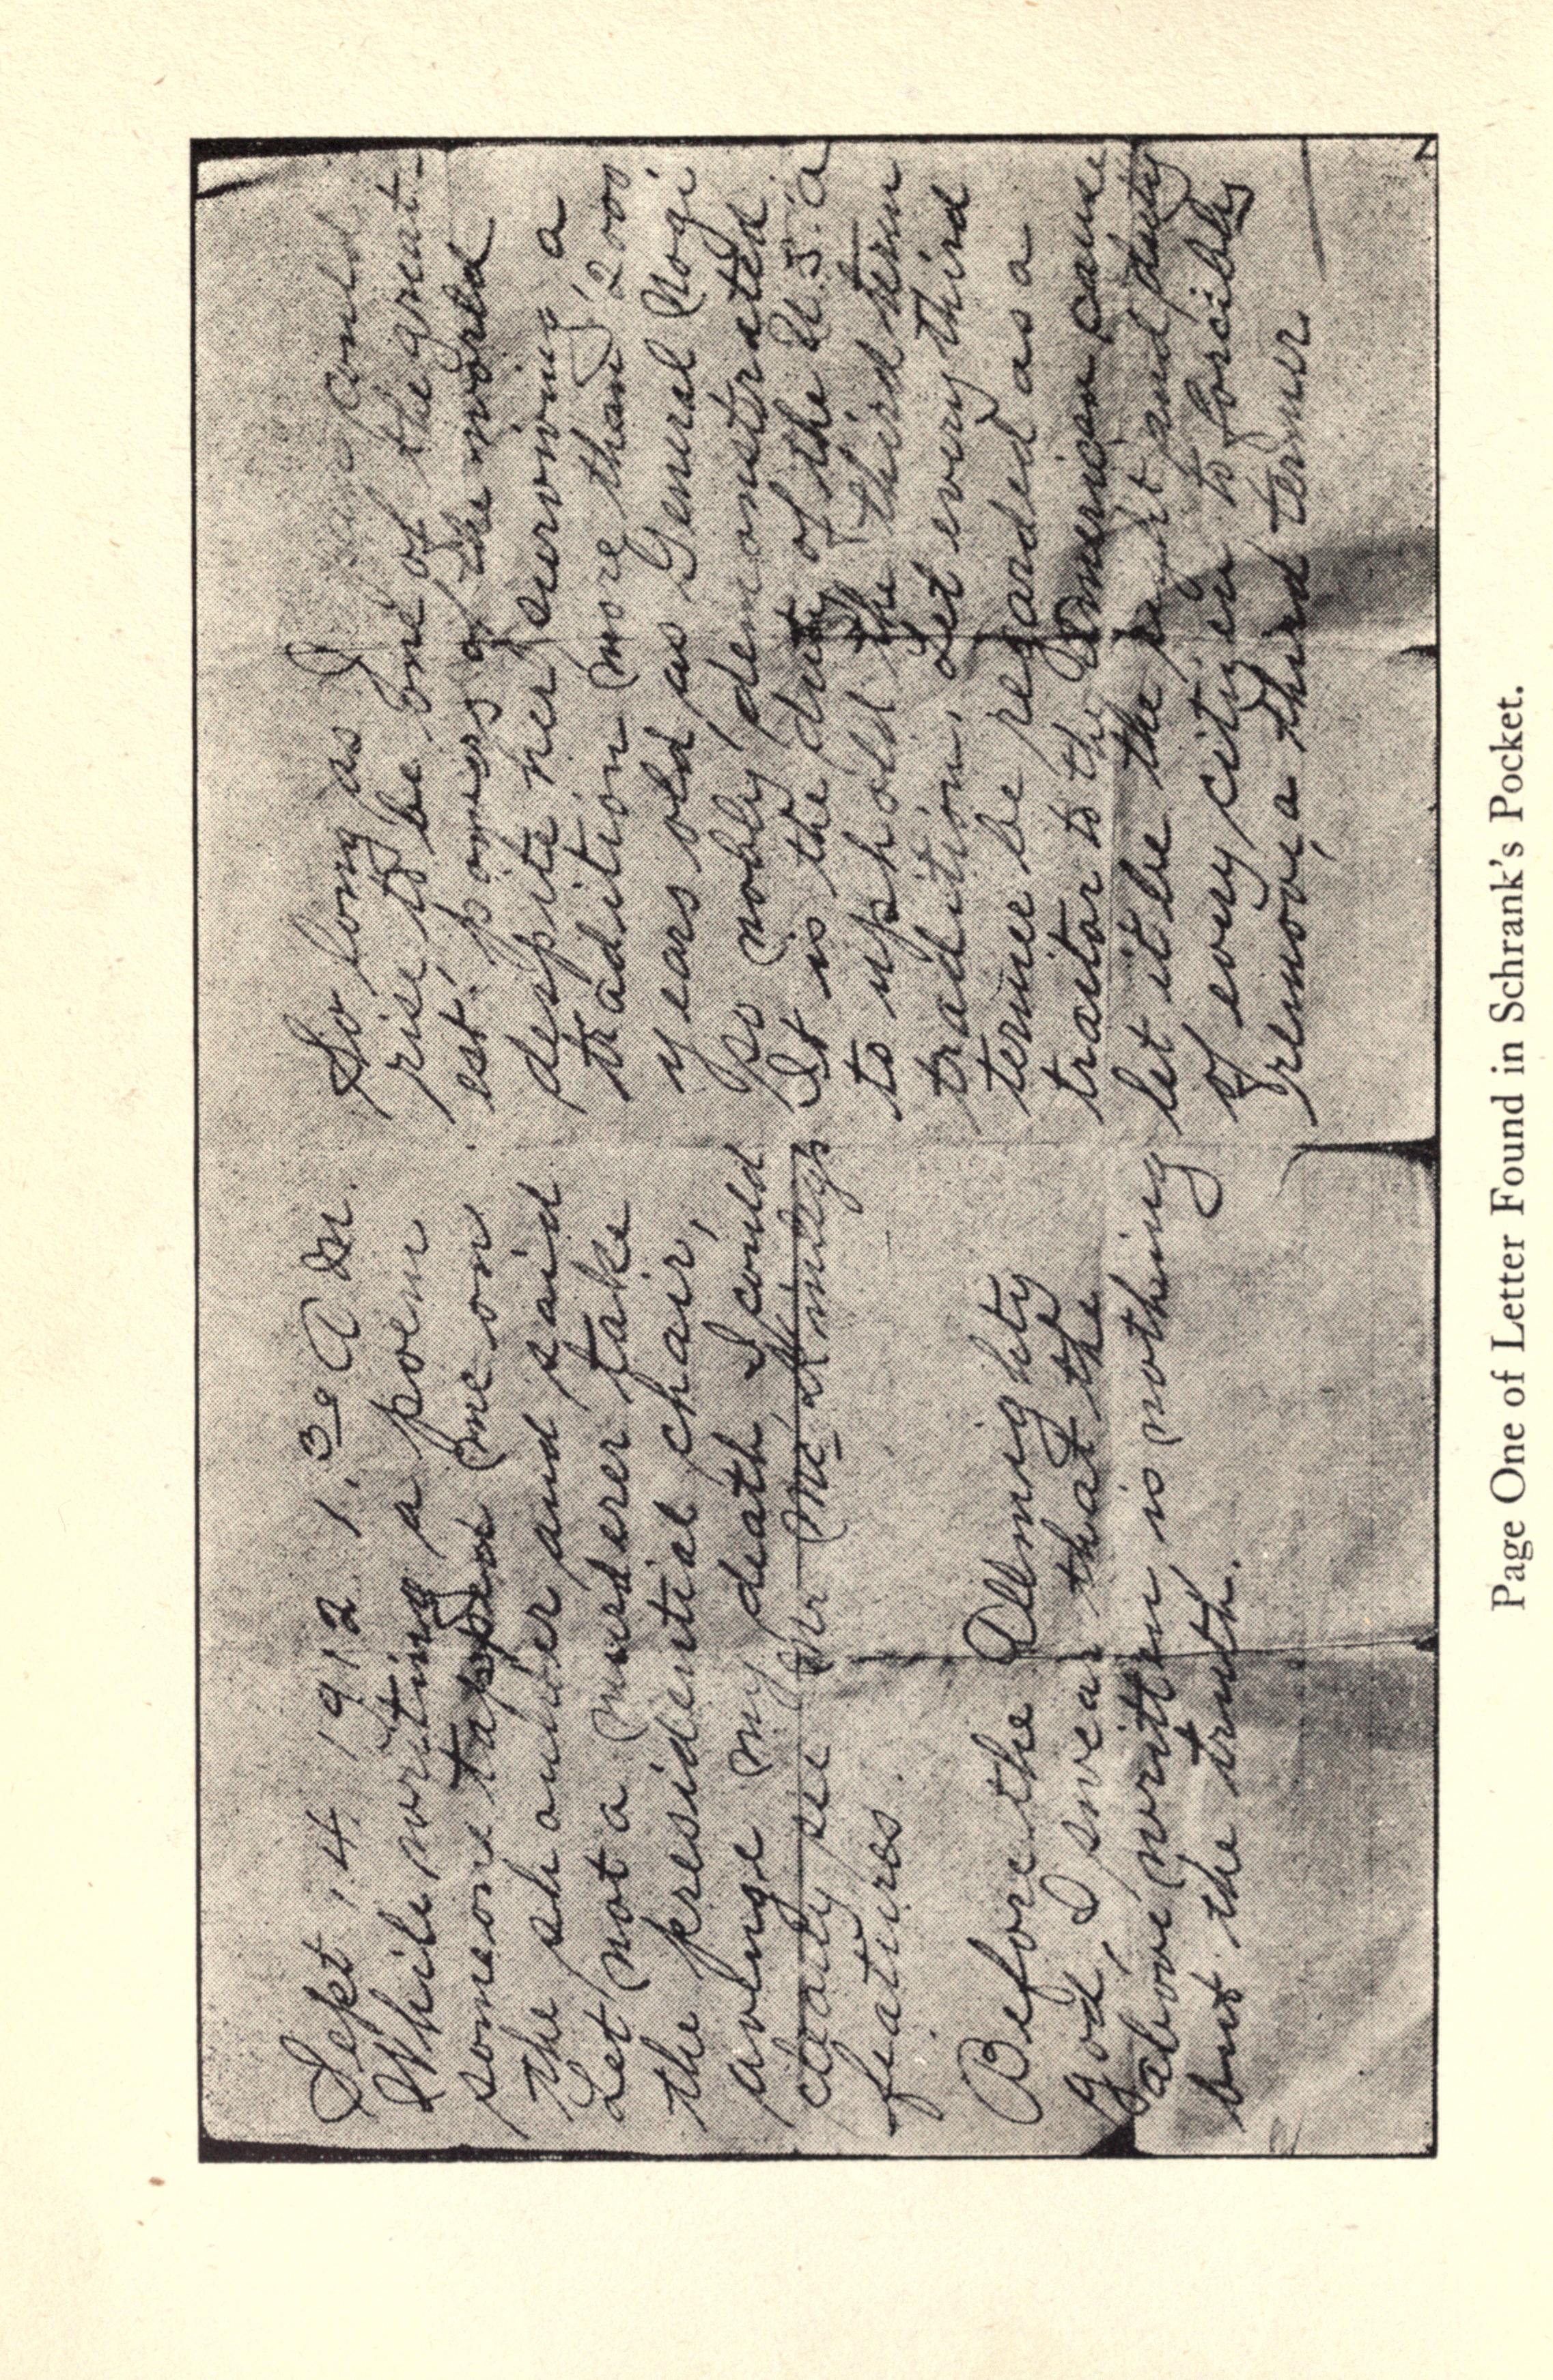 Sept. 14 1912 1.30 A M.
While writing a poem
someone tapped me on
the shoulder and said
Let not a murderer take
the presidential chair,
avenge my death I could
clearly see Mr McKinleys
features.
Before the Allmighty
God, I swear that the
above written is nothing
but the truth.
So long as Japan could
rise to be one of the great-
est powers of the world
despite her surviving a
tradition more than 2000
years old as General Nogi
so nobly demonstrated
It is the duty of the U.S.A
to uphold the third term
tradition, Let every third
termer be regarded as a
traitor to the American cause
let it be the right and duty
of every citizen to forcibly
remove a third termer
Page One of Letter Found in Schrank's Pocket.